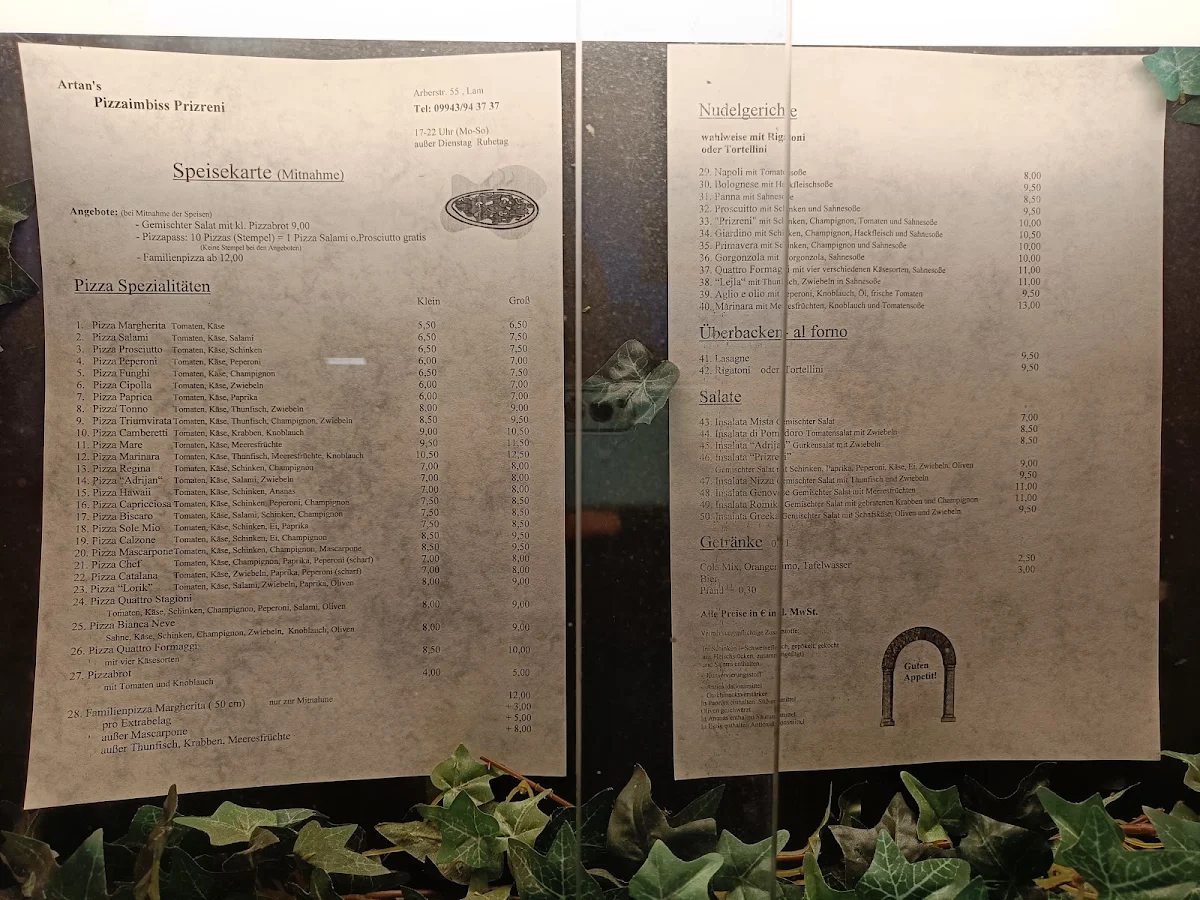 Artan's
Pizzaimbiss Prizreni
Arberstr. 55 , Lam
Tel: 09943/94 37 37
17-22 Uhr (Mo-So)
außer Dienstag Ruhetag
Speisekarte (Mitnahme)
Angebote: (bei Mitnahme der Speisen)
- Gemischter Salat mit kl. Pizzabrot 9,00
- Pizzapass: 10 Pizzas (Stempel) = 1 Pizza Salami o.Prosciutto gratis
(Keine Stempel bei den Angeboten)
- Familienpizza ab 12,00
Pizza Spezialitäten
Klein Groß
1. Pizza Margherita Tomaten, Käse 5,50 6,50
2. Pizza Salami Tomaten, Käse, Salami 6,50 7,50
3. Pizza Prosciutto Tomaten, Käse, Schinken 6,50 7,50
4. Pizza Peperoni Tomaten, Käse, Peperoni 6,00 7,00
5. Pizza Funghi Tomaten, Käse, Champignon 6,50 7,50
6. Pizza Cipolla Tomaten, Käse, Zwiebeln 6,00 7,00
7. Pizza Paprica Tomaten, Käse, Paprika 6,00 7,00
8. Pizza Tonno Tomaten, Käse, Thunfisch, Zwiebeln 8,00 9,00
9. Pizza Triumvirata Tomaten, Käse, Thunfisch, Champignon, Zwiebeln 8,50 9,50
10. Pizza Camberetti Tomaten, Käse, Krabben, Knoblauch 9,00 10,50
11. Pizza Mare Tomaten, Käse, Meeresfrüchte 9,50 11,50
12. Pizza Marinara Tomaten, Käse, Thunfisch, Meeresfrüchte, Knoblauch 10,50 12,50
13. Pizza Regina Tomaten, Käse, Schinken, Champignon 7,00 8,00
14. Pizza "Adrijan" Tomaten, Käse, Salami, Zwiebeln 7,00 8,00
15. Pizza Hawaii Tomaten, Käse, Schinken, Ananas 7,00 8,00
16. Pizza Capricciosa Tomaten, Käse, Schinken, Peperoni, Champignon 7,50 8,50
17. Pizza Biscaro Tomaten, Käse, Salami, Schinken, Champignon 7,50 8,50
18. Pizza Sole Mio Tomaten, Käse, Schinken, Ei, Paprika 7,50 8,50
19. Pizza Calzone Tomaten, Käse, Schinken, Ei, Champignon 8,50 9,50
20. Pizza Mascarpone Tomaten, Käse, Schinken, Champignon, Mascarpone 8,50 9,50
21. Pizza Chef Tomaten, Käse, Champignon, Paprika, Peperoni (scharf) 7,00 8,00
22. Pizza Catalana Tomaten, Käse, Zwiebeln, Paprika, Peperoni (scharf) 7,00 8,00
23. Pizza "Lorik" Tomaten, Käse, Salami, Zwiebeln, Paprika, Oliven 8,00 9,00
24. Pizza Quattro Stagioni
Tomaten, Käse, Schinken, Champignon, Peperoni, Salami, Oliven 8,00 9,00
25. Pizza Bianca Neve
Sahne, Käse, Schinken, Champignon, Zwiebeln, Knoblauch, Oliven 8,00 9,00
26. Pizza Quattro Formaggi
mit vier Käsesorten 8,50 10,00
27. Pizzabrot 4,00 5,00
mit Tomaten und Knoblauch
28. Familienpizza Margherita ( 50 cm) nur zur Mitnahme 12,00
pro Extrabelag + 3,00
außer Mascarpone + 5,00
außer Thunfisch, Krabben, Meeresfrüchte + 8,00
Nudelgerichte
wahlweise mit Rigatoni
oder Tortellini
29. Napoli mit Tomatensoße 8,00
30. Bolognese mit Hackfleischsoße 9,50
31. Panna mit Sahnesoße 8,50
32. Proscuitto mit Schinken und Sahnesoße 9,50
33. "Prizreni" mit Schinken, Champignon, Tomaten und Sahnesoße 10,00
34. Giardino mit Schinken, Champignon, Hackfleisch und Sahnesoße 10,50
35. Primavera mit Schinken, Champignon und Sahnesoße 10,00
36. Gorgonzola mit Gorgonzola, Sahnesoße 10,00
37. Quattro Formaggi mit vier verschiedenen Käsesorten, Sahnesoße 11,00
38. "Lejla" mit Thunfisch, Zwiebeln in Sahnesoße 11,00
39. Aglio e olio mit Peperoni, Knoblauch, Öl, frische Tomaten 9,50
40. Marinara mit Meeresfrüchten, Knoblauch und Tomatensoße 13,00
Überbacken - al forno
41. Lasagne 9,50
42. Rigatoni oder Tortellini 9,50
Salate
43. Insalata Mista Gemischter Salat 7,00
44. Insalata di Pomodoro Tomatensalat mit Zwiebeln 8,50
45. Insalata "Adrijan" Gurkensalat mit Zwiebeln 8,50
46. Insalata "Prizreni"
Gemischter Salat mit Schinken, Paprika, Peperoni, Käse, Ei, Zwiebeln, Oliven 9,00
47. Insalata Nizza Gemischter Salat mit Thunfisch und Zwiebeln 9,50
48. Insalata Genovese Gemischter Salat mit Meeresfrüchten 11,00
49. Insalata Romik Gemischter Salat mit gebratenen Krabben und Champignon 11,00
50. Insalata Greeka Gemischter Salat mit Schafskäse, Oliven und Zwiebeln 9,50
Getränke
Cola Mix, Orangenlimo, Tafelwasser 2,50
Bier 3,00
Pfand 0,30
Alle Preise in € inkl. MwSt.
Guten
Appetit!